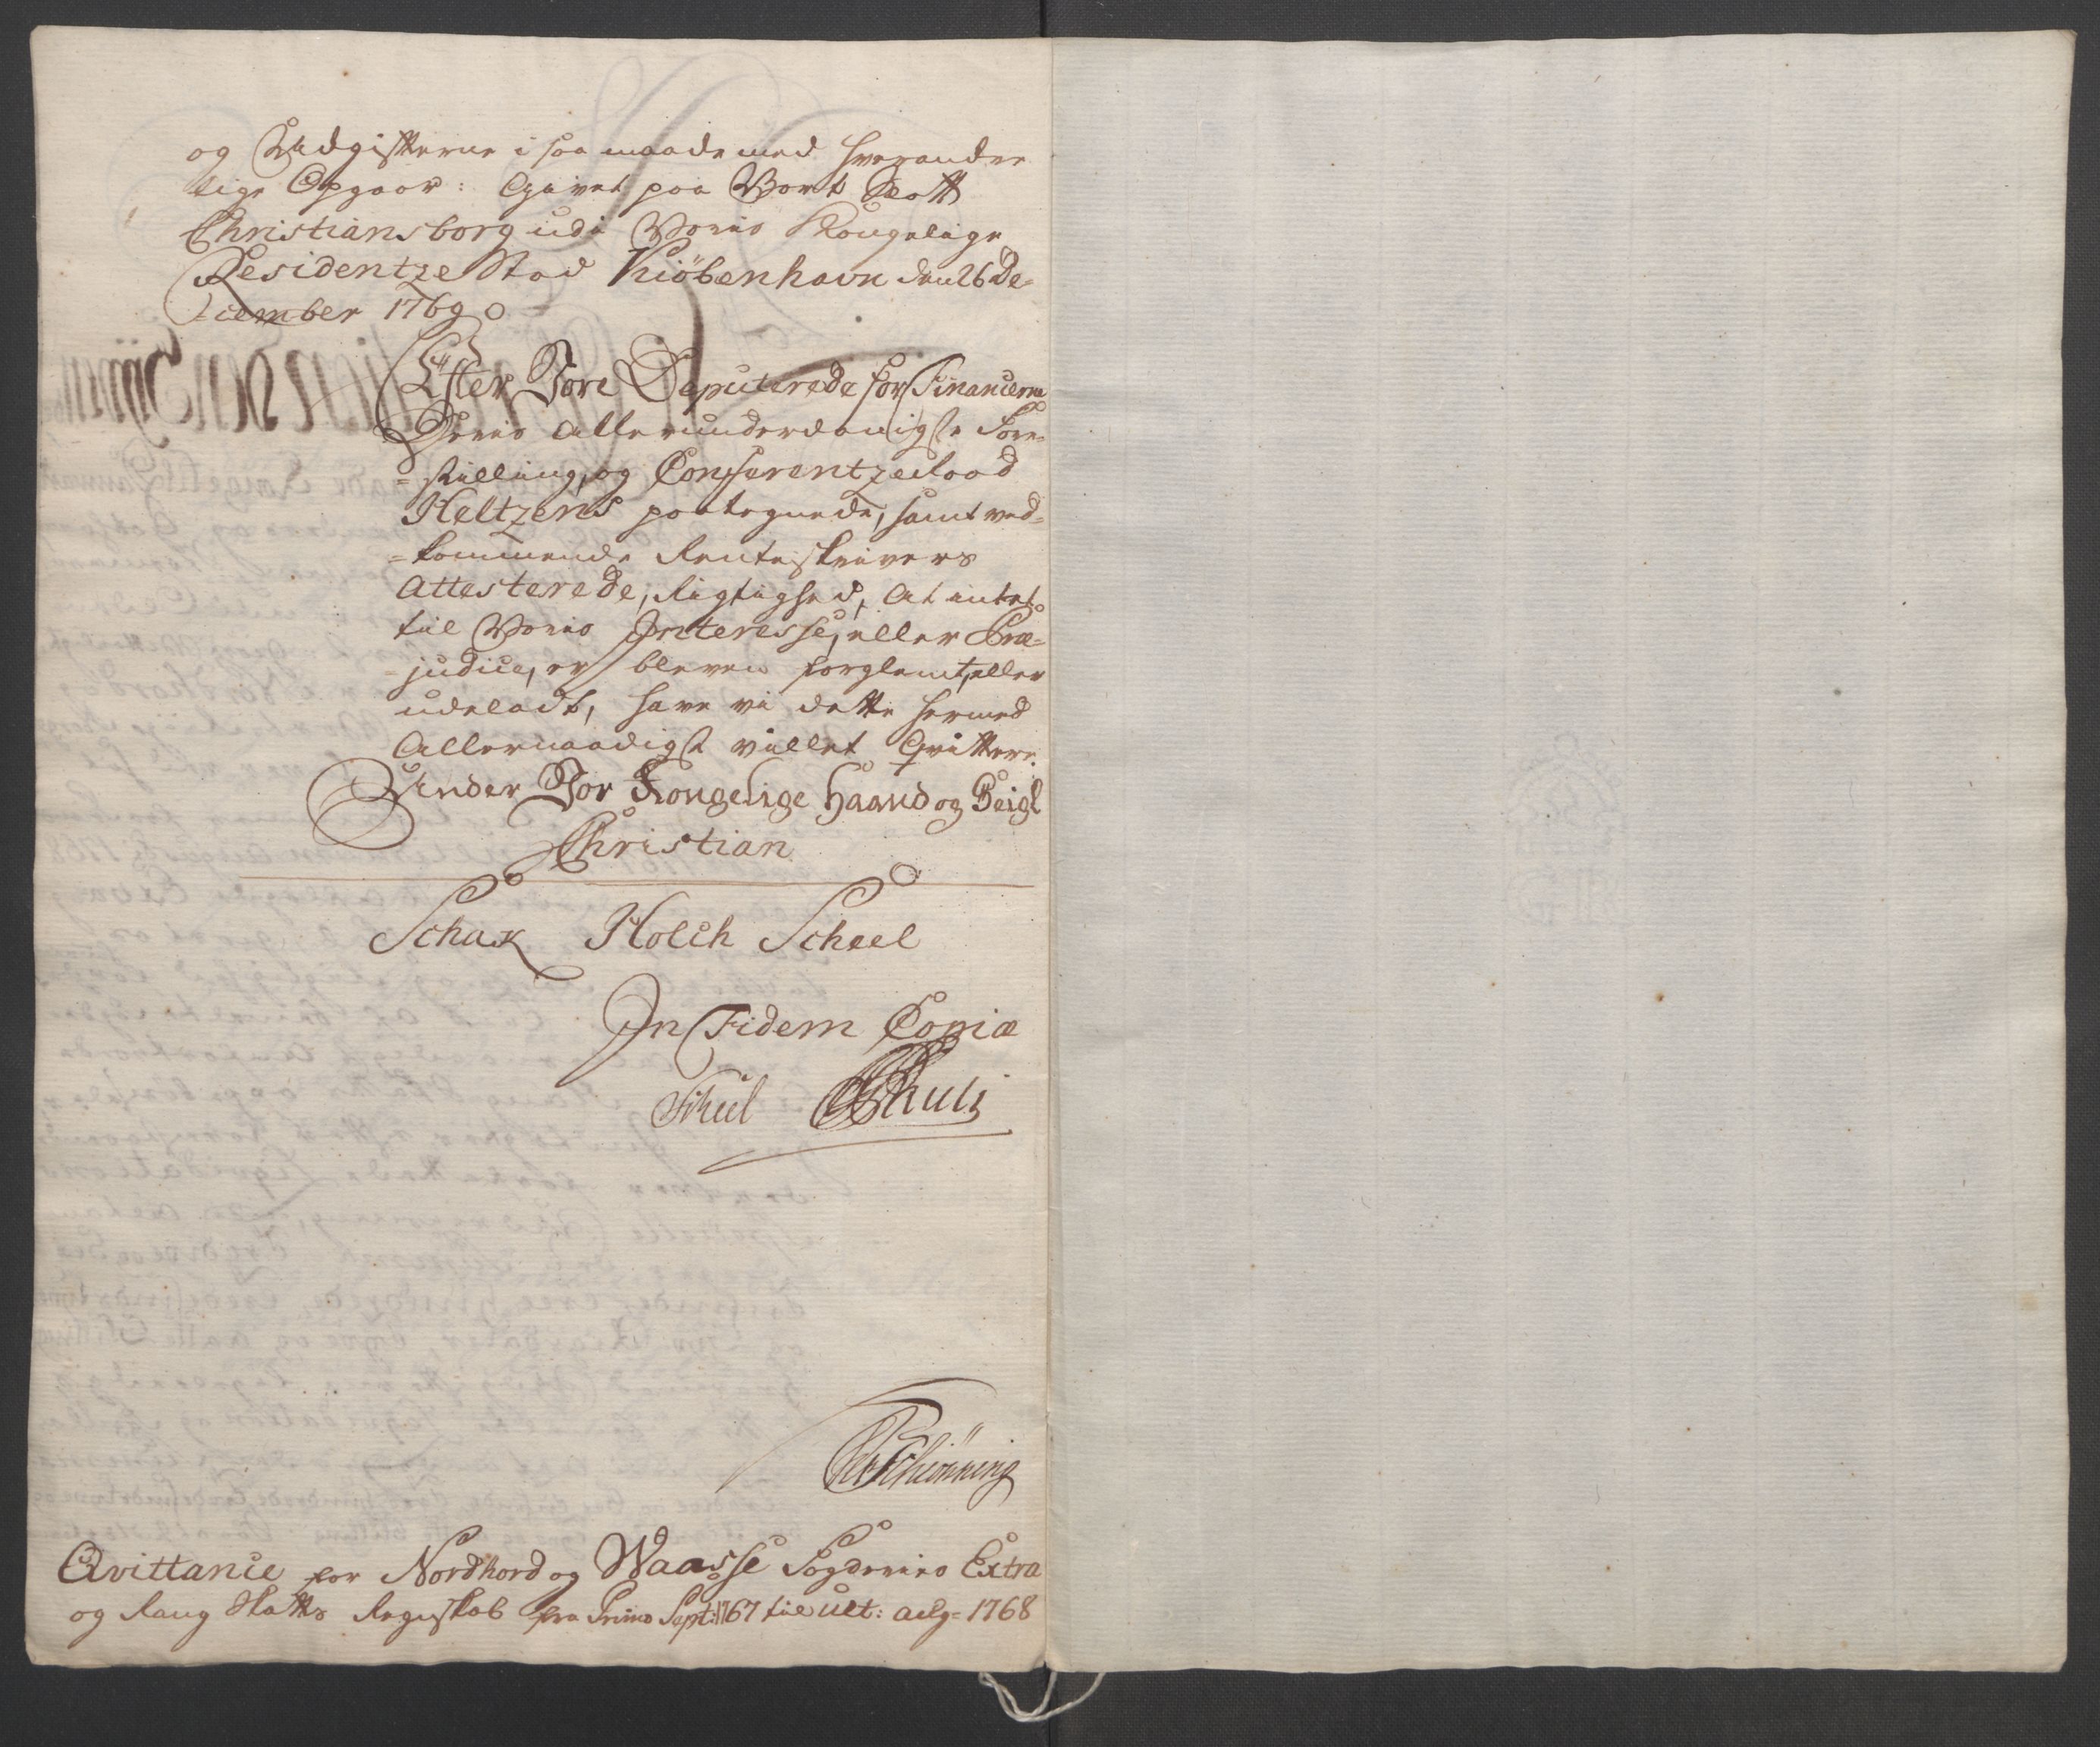 og Udgifterne i saa maade med hverandre
lige Opgaar: Givet paa Vort Slott
Christiansborg udi Voris Kongelige
Residentze Stad Kiöbenhavn den 26 De-
=cember 1769
Efter Vore Deputerede for Financerne
Deris allerunderdanigste Fore-
=stilling, og Conferentzeraad
Heltzens paategnede, samt ved-
=kommende Renteskrivers
Attesterede, Rigtighed, at intet
til Voris Interesse, eller Præ-
=judice, er bleven forglemt, eller
udeladt, have vi dette hermed
Allernaadigst villet Qvittere.
Under Vor Kongelige Haand og Seigl
Christian
Schak Holch Scheel
In Fidem Copiæ
Qvittance for Nordhord og Waasse Fogderies Extra
og Rang Skatts Regnskab fra Primo Sept: 1767 til ult: aug= 1768